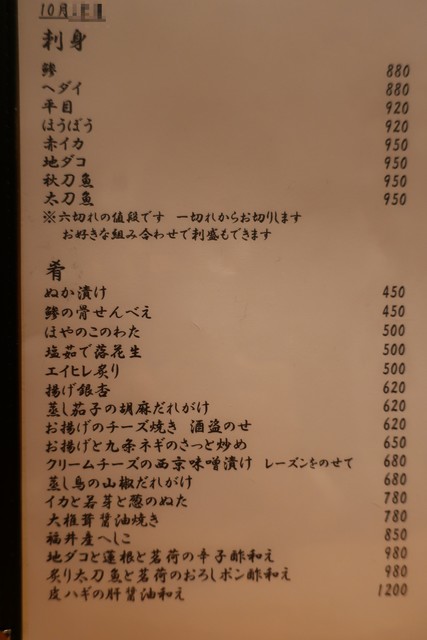 10月
刺身
鯵 880
ヘダイ 880
平目 920
ほうぼう 920
赤イカ 950
地ダコ 950
秋刀魚 950
太刀魚 950
※六切れの値段です 一切れからお切りします
お好きな組み合わせで刺盛もできます
肴
ぬか漬け 450
鯵の骨せんべえ 450
ほやのこのわた 500
塩茹で落花生 500
エイヒレ炙り 500
揚げ銀杏 620
蒸し茄子の胡麻だれがけ 620
お揚げのチーズ焼き 酒盗のせ 620
お揚げと九条ネギのさっと炒め 650
クリームチーズの西京味噌漬け レーズンをのせて 680
蒸し鳥の山椒だれがけ 680
イカと若芽と葱のぬた 780
大椎茸醤油焼き 780
福井産へしこ 850
地ダコと蓮根と茗荷の辛子酢和え 980
炙り太刀魚と茗荷のおろしポン酢和え 980
皮ハギの肝醤油和え 1200